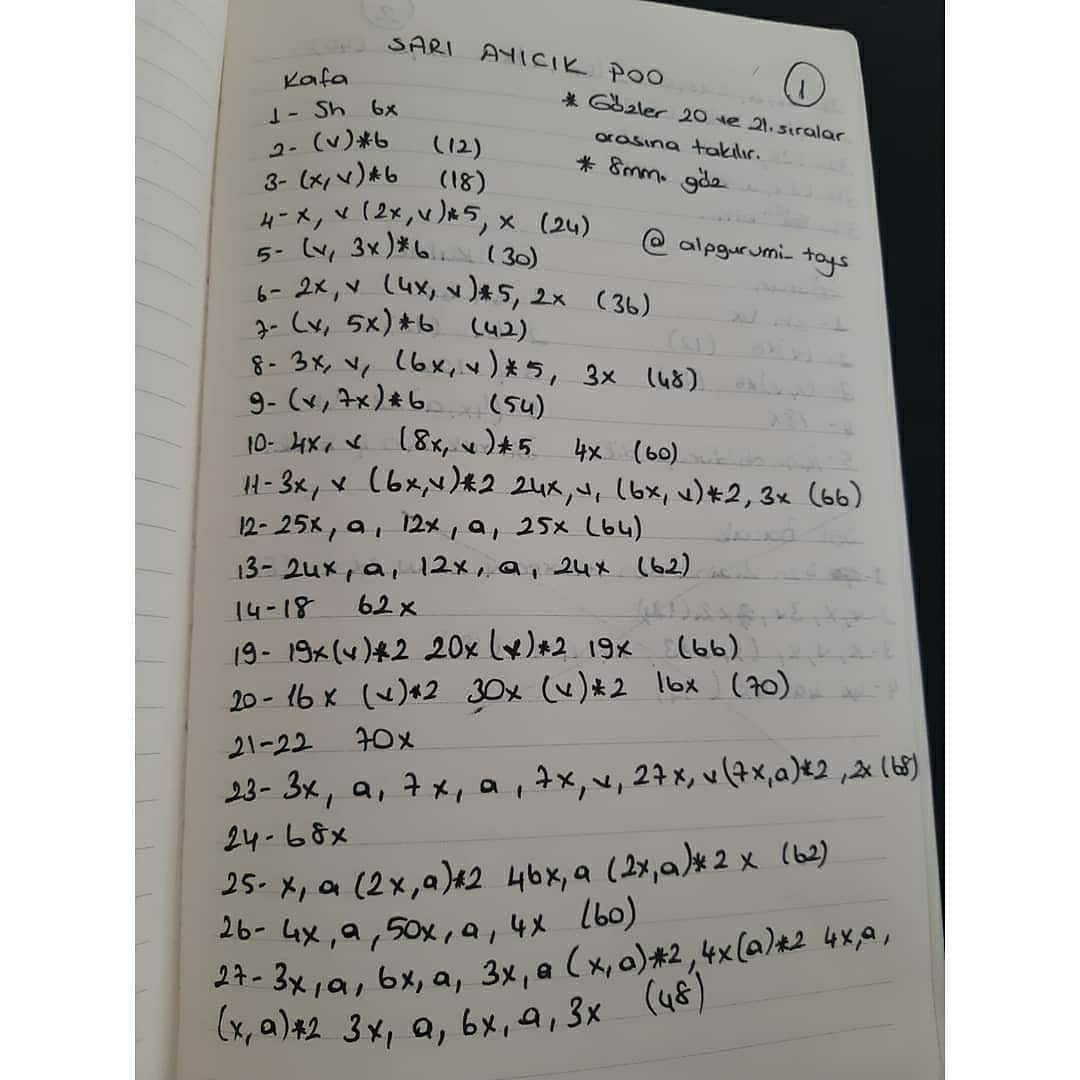 SARI AYICIK POO
1
Kafa
* Gözler 20 ve 21. sıralar
arasına takılır.
* 8mm. göz
@ alpgurumi_toys
1- Sh 6x
2- (v)*6 (12)
3- (x,v)*6 (18)
4- x, v (2x,v)*5, x (24)
5- (v, 3x)*6 (30)
6- 2x, v (4x, v)*5, 2x (36)
7- (v, 5x)*6 (42)
8- 3x, v, (6x, v)*5, 3x (48)
9- (v, 7x)*6 (54)
10- 4x, v (8x, v)*5 4x (60)
11- 3x, v (6x,v)*2 24x, v, (6x, v)*2, 3x (66)
12- 25x, a, 12x, a, 25x (64)
13- 24x, a, 12x, a, 24x (62)
14-18 62x
19- 19x(v)*2 20x (v)*2 19x (66)
20- 16x (v)*2 30x (v)*2 16x (70)
21-22 70x
23- 3x, a, 7x, a, 7x, v, 27x, v (7x,a)*2, 2x (68)
24- 68x
25- x, a (2x,a)*2 46x, a (2x,a)*2 x (62)
26- 4x, a, 50x, a, 4x (60)
27- 3x, a, 6x, a, 3x, a (x,a)*2, 4x(a)*2 4x,a,
(x,a)*2 3x, a, 6x, a, 3x (48)